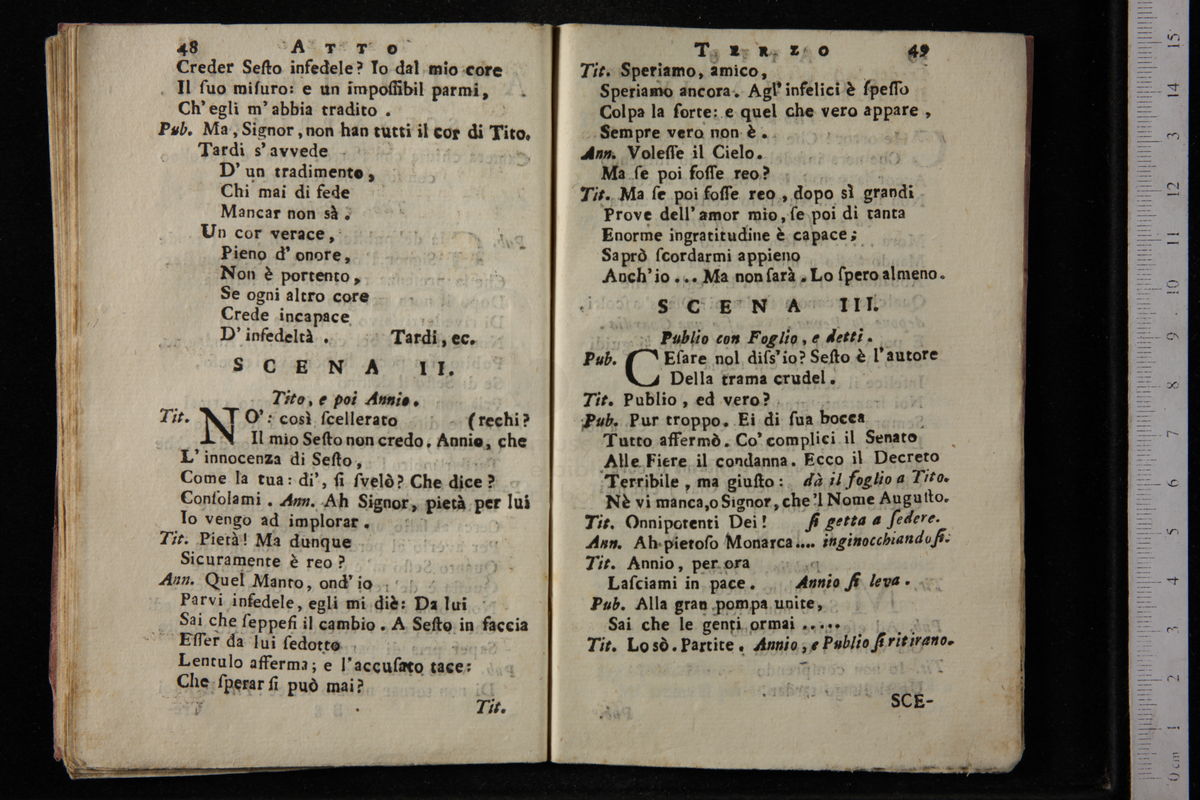 48 ATTO
Creder Seſto infedele? Io dal mio core
Il ſuo miſuro: e un impoſſibil parmi,
Ch' egli m' abbia tradito .
Pub. Ma, Signor, non han tutti il cor di Tito.
Tardi s' avvede
D' un tradimento,
Chi mai di fede
Mancar non sà .
Un cor verace,
Pieno d' onore,
Non è portento,
Se ogni altro core
Crede incapace
D' infedeltà . Tardi, ec.
SCENA II.
Tito, e poi Annio.
Tit. NO': così ſcellerato (rechi?
Il mio Seſto non credo. Annio, che
L' innocenza di Seſto,
Come la tua: di', ſi ſvelò? Che dice?
Conſolami . Ann. Ah Signor, pietà per lui
Io vengo ad implorar .
Tit. Pietà! Ma dunque
Sicuramente è reo ?
Ann. Quel Manto, ond' io
Parvi infedele, egli mi diè: Da lui
Sai che ſeppeſi il cambio . A Seſto in faccia
Eſſer da lui ſedotto
Lentulo afferma; e l'accuſato tace:
Che ſperar ſi può mai?
Tit.
TERZO 49
Tit. Speriamo, amico,
Speriamo ancora. Agl' infelici è ſpeſſo
Colpa la ſorte: e quel che vero appare ,
Sempre vero non è .
Ann. Voleſſe il Cielo.
Ma ſe poi foſſe reo?
Tit. Ma ſe poi foſſe reo , dopo sì grandi
Prove dell' amor mio, ſe poi di tanta
Enorme ingratitudine è capace;
Saprò ſcordarmi appieno
Anch' io ... Ma non ſarà . Lo ſpero almeno.
SCENA III.
Publio con Foglio, e detti .
Pub. CEſare nol diſs'io? Seſto è l'autore
Della trama crudel .
Tit. Publio , ed vero?
Pub. Pur troppo. Ei di ſua bocca
Tutto affermò. Co' complici il Senato
Alle Fiere il condanna. Ecco il Decreto
Terribile , ma giuſto : dà il foglio a Tito.
Nè vi manca,o Signor, che 'l Nome Auguſto.
Tit. Onnipotenti Dei ! ſi getta a ſedere.
Ann. Ah pietoſo Monarca.... inginocchiandoſi.
Tit. Annio, per ora
Laſciami in pace . Annio ſi leva .
Pub. Alla gran pompa unite,
Sai che le genti ormai .....
Tit. Lo sò. Partite . Annio, e Publio ſi ritirano.
SCE-